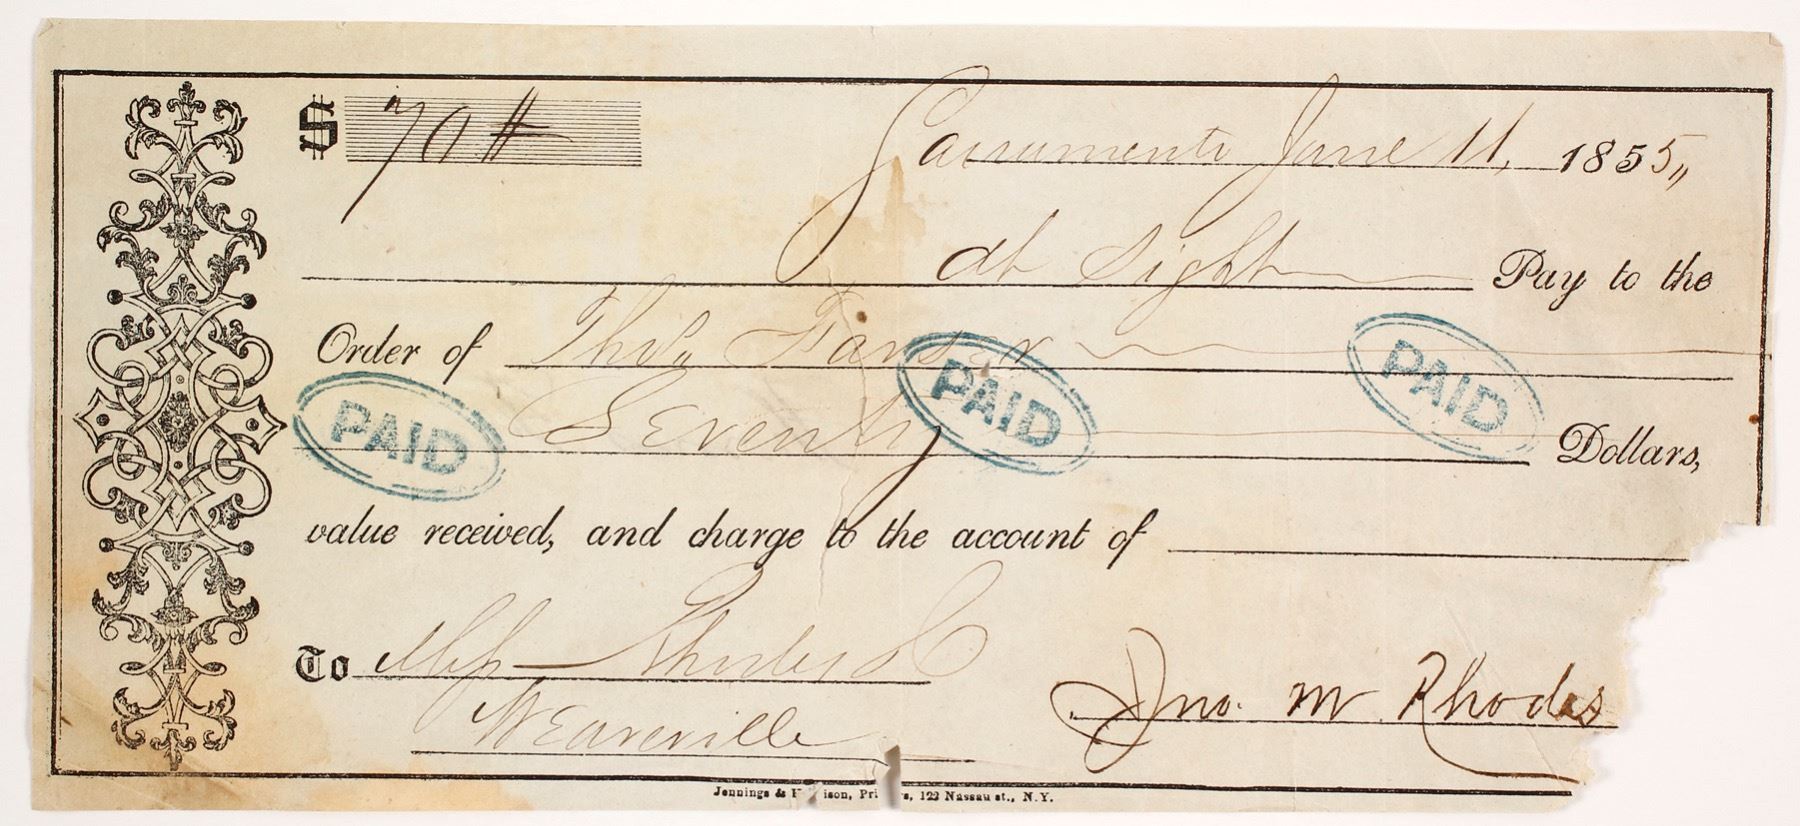 $ 70 #
Sacramento June 11, 1855,,
at sight Pay to the
Order of Thos. Farser
PAID
PAID
PAID
Seventy Dollars,
value received, and charge to the account of
To Mess Rhodes & C
Weaverville
Jno. M Rhodes
Jennings & H ison, Pri s, 122 Nassau st., N.Y.